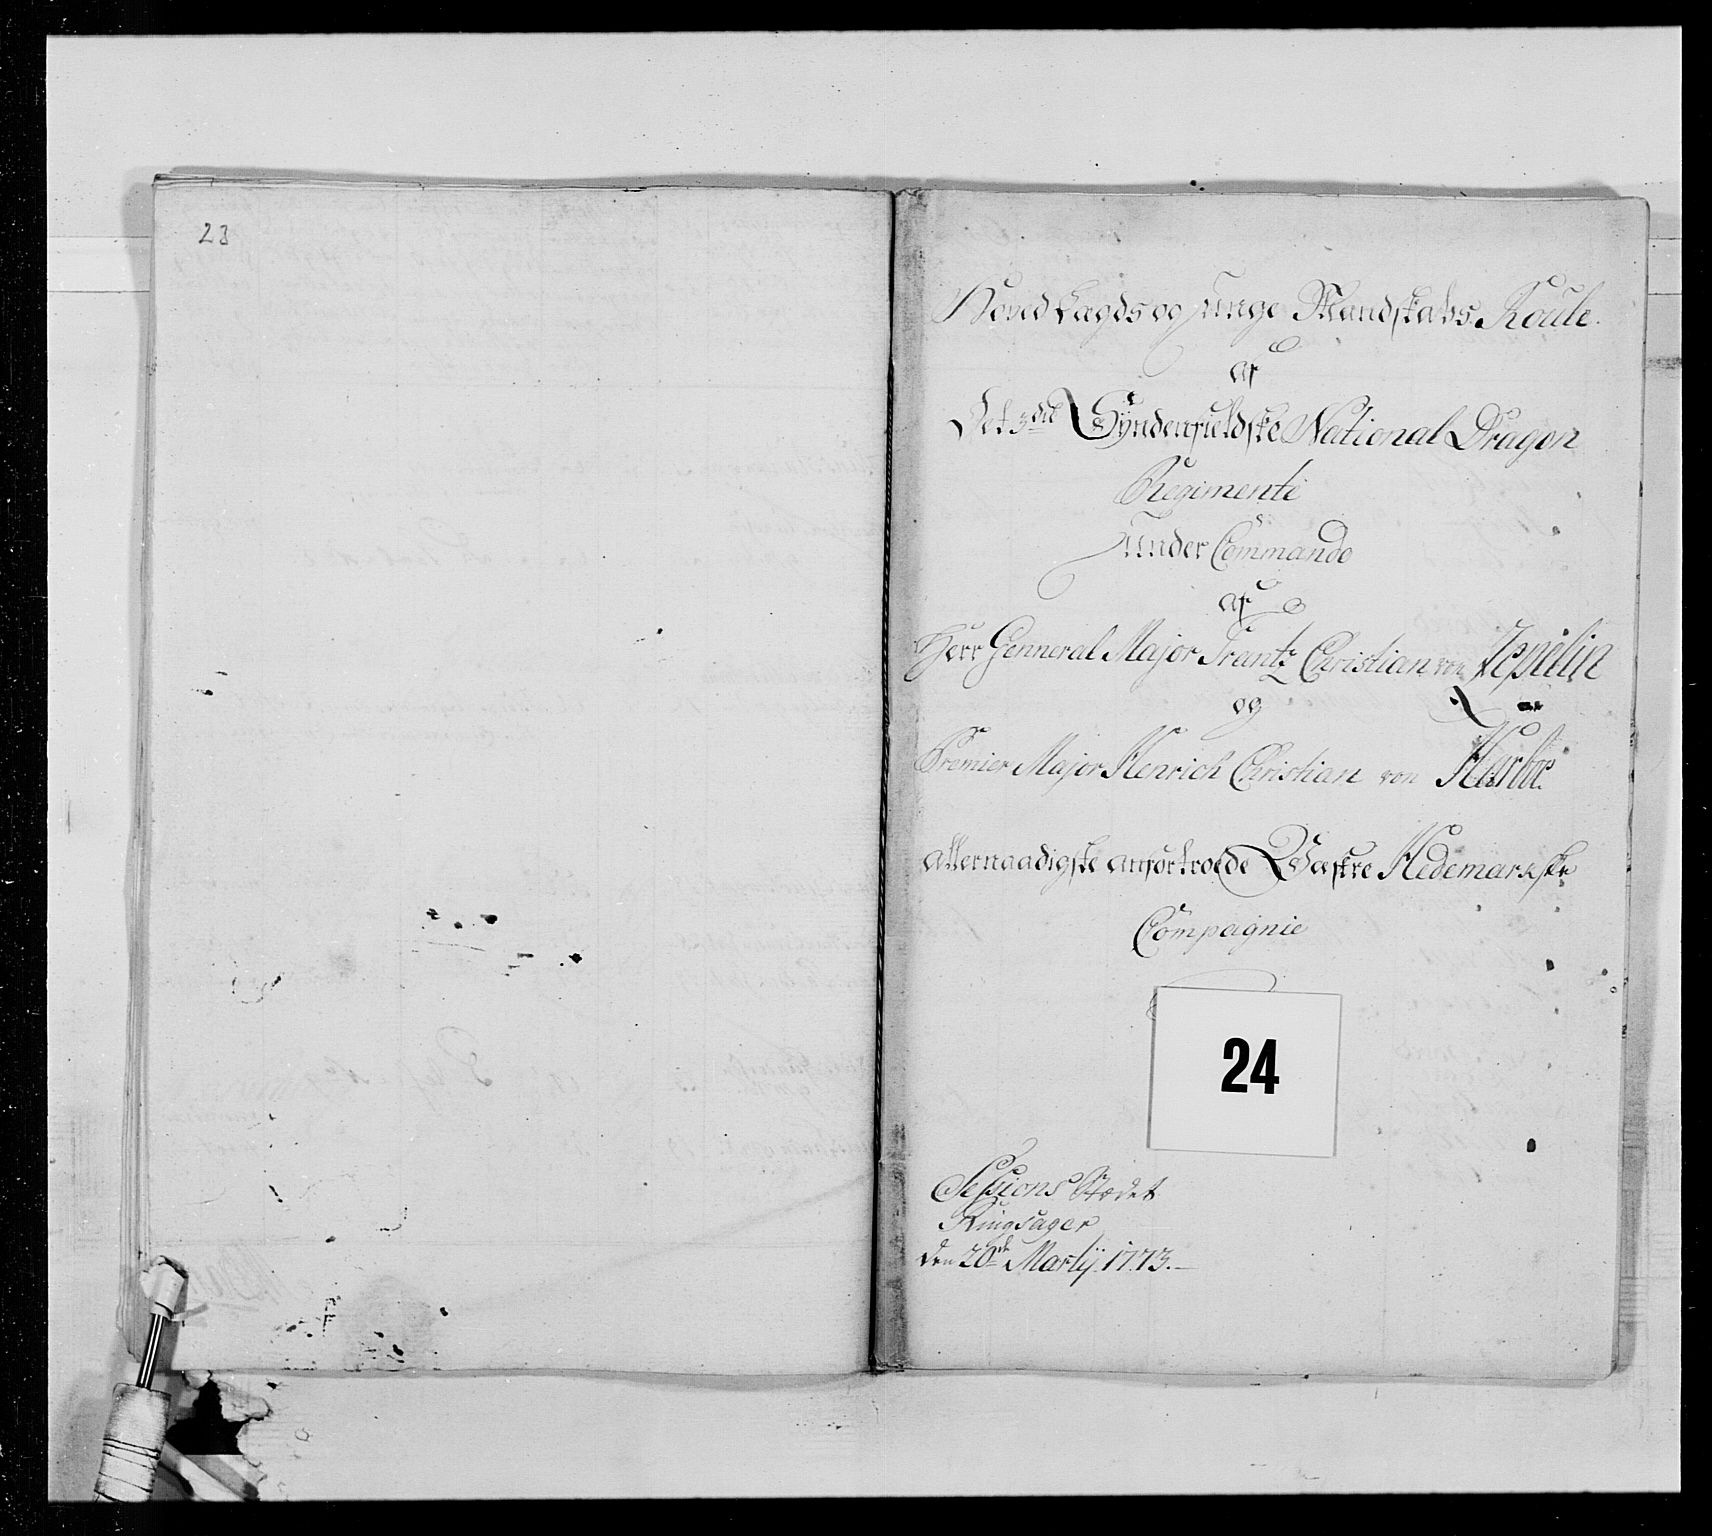 23
Hoved Lægds og unge Mandskabs Roule.
af
Det 3die Syndenfieldske National Dragon
Regimente
under Commando
af
Herr Genneral Major Frantz Christian von Zepelin
og
Premier Major Henrich Christian von Harboe
allernaadigste anfortroede Væstre Hedemarkske
Compagnie
24
Sessions Stædet
Ringsager
den 20de Martij 1773.